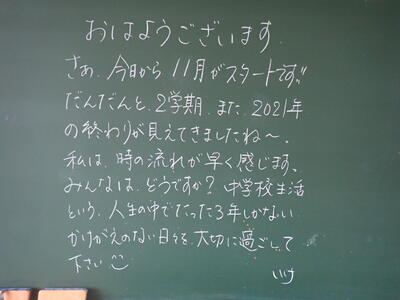 おはようございます。
さあ、今日から11月がスタートです!!
だんだんと、2学期、また、2021年
の終わりが見えてきましたね〜。
私は、時の流れが早く感じます。
みんなは、どうですか? 中学校生活
という、人生の中でたった3年しかない
かけがえのない日々を、大切に過ごして
下さい